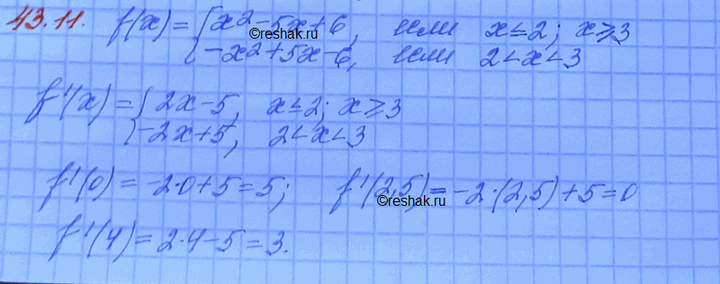 43.11. f(x) = { x² - 5x + 6, если x ≤ 2; x ≥ 3
-x² + 5x - 6, если 2 < x < 3
©reshak.ru
f'(x) = { 2x - 5, x ≤ 2; x ≥ 3
-2x + 5, 2 < x < 3
f'(0) = -2·0 + 5 = 5; f'(2,5) = -2·(2,5) + 5 = 0
©reshak.ru
f'(4) = 2·4 - 5 = 3.